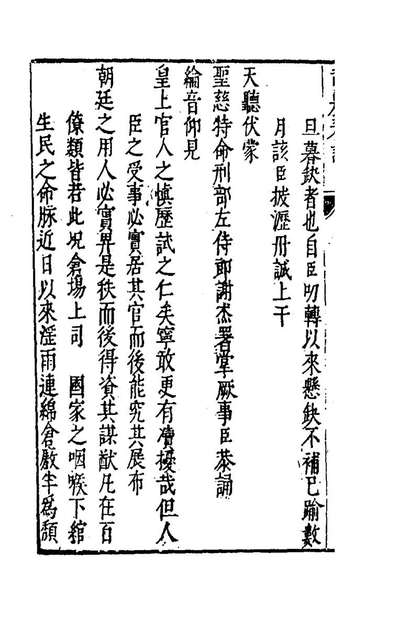 旦暮缺者也自臣叨轉以來懸缺不補已踰數
月該臣披瀝冊誠上干
天聽伏蒙
聖慈特命刑部左侍郎謝杰署掌厥事臣恭誦
綸音仰見
皇上官人之慎歷試之仁矣寧敢更有瀆擾哉但人
臣之受事必實居其官而後能究其展布
朝廷之用人必實畀是秩而後得資其謀猷凡在百
僚類皆若此况倉塲上司 國家之咽喉下綰
生民之命脉近日以來淫雨連綿倉廒半為頹